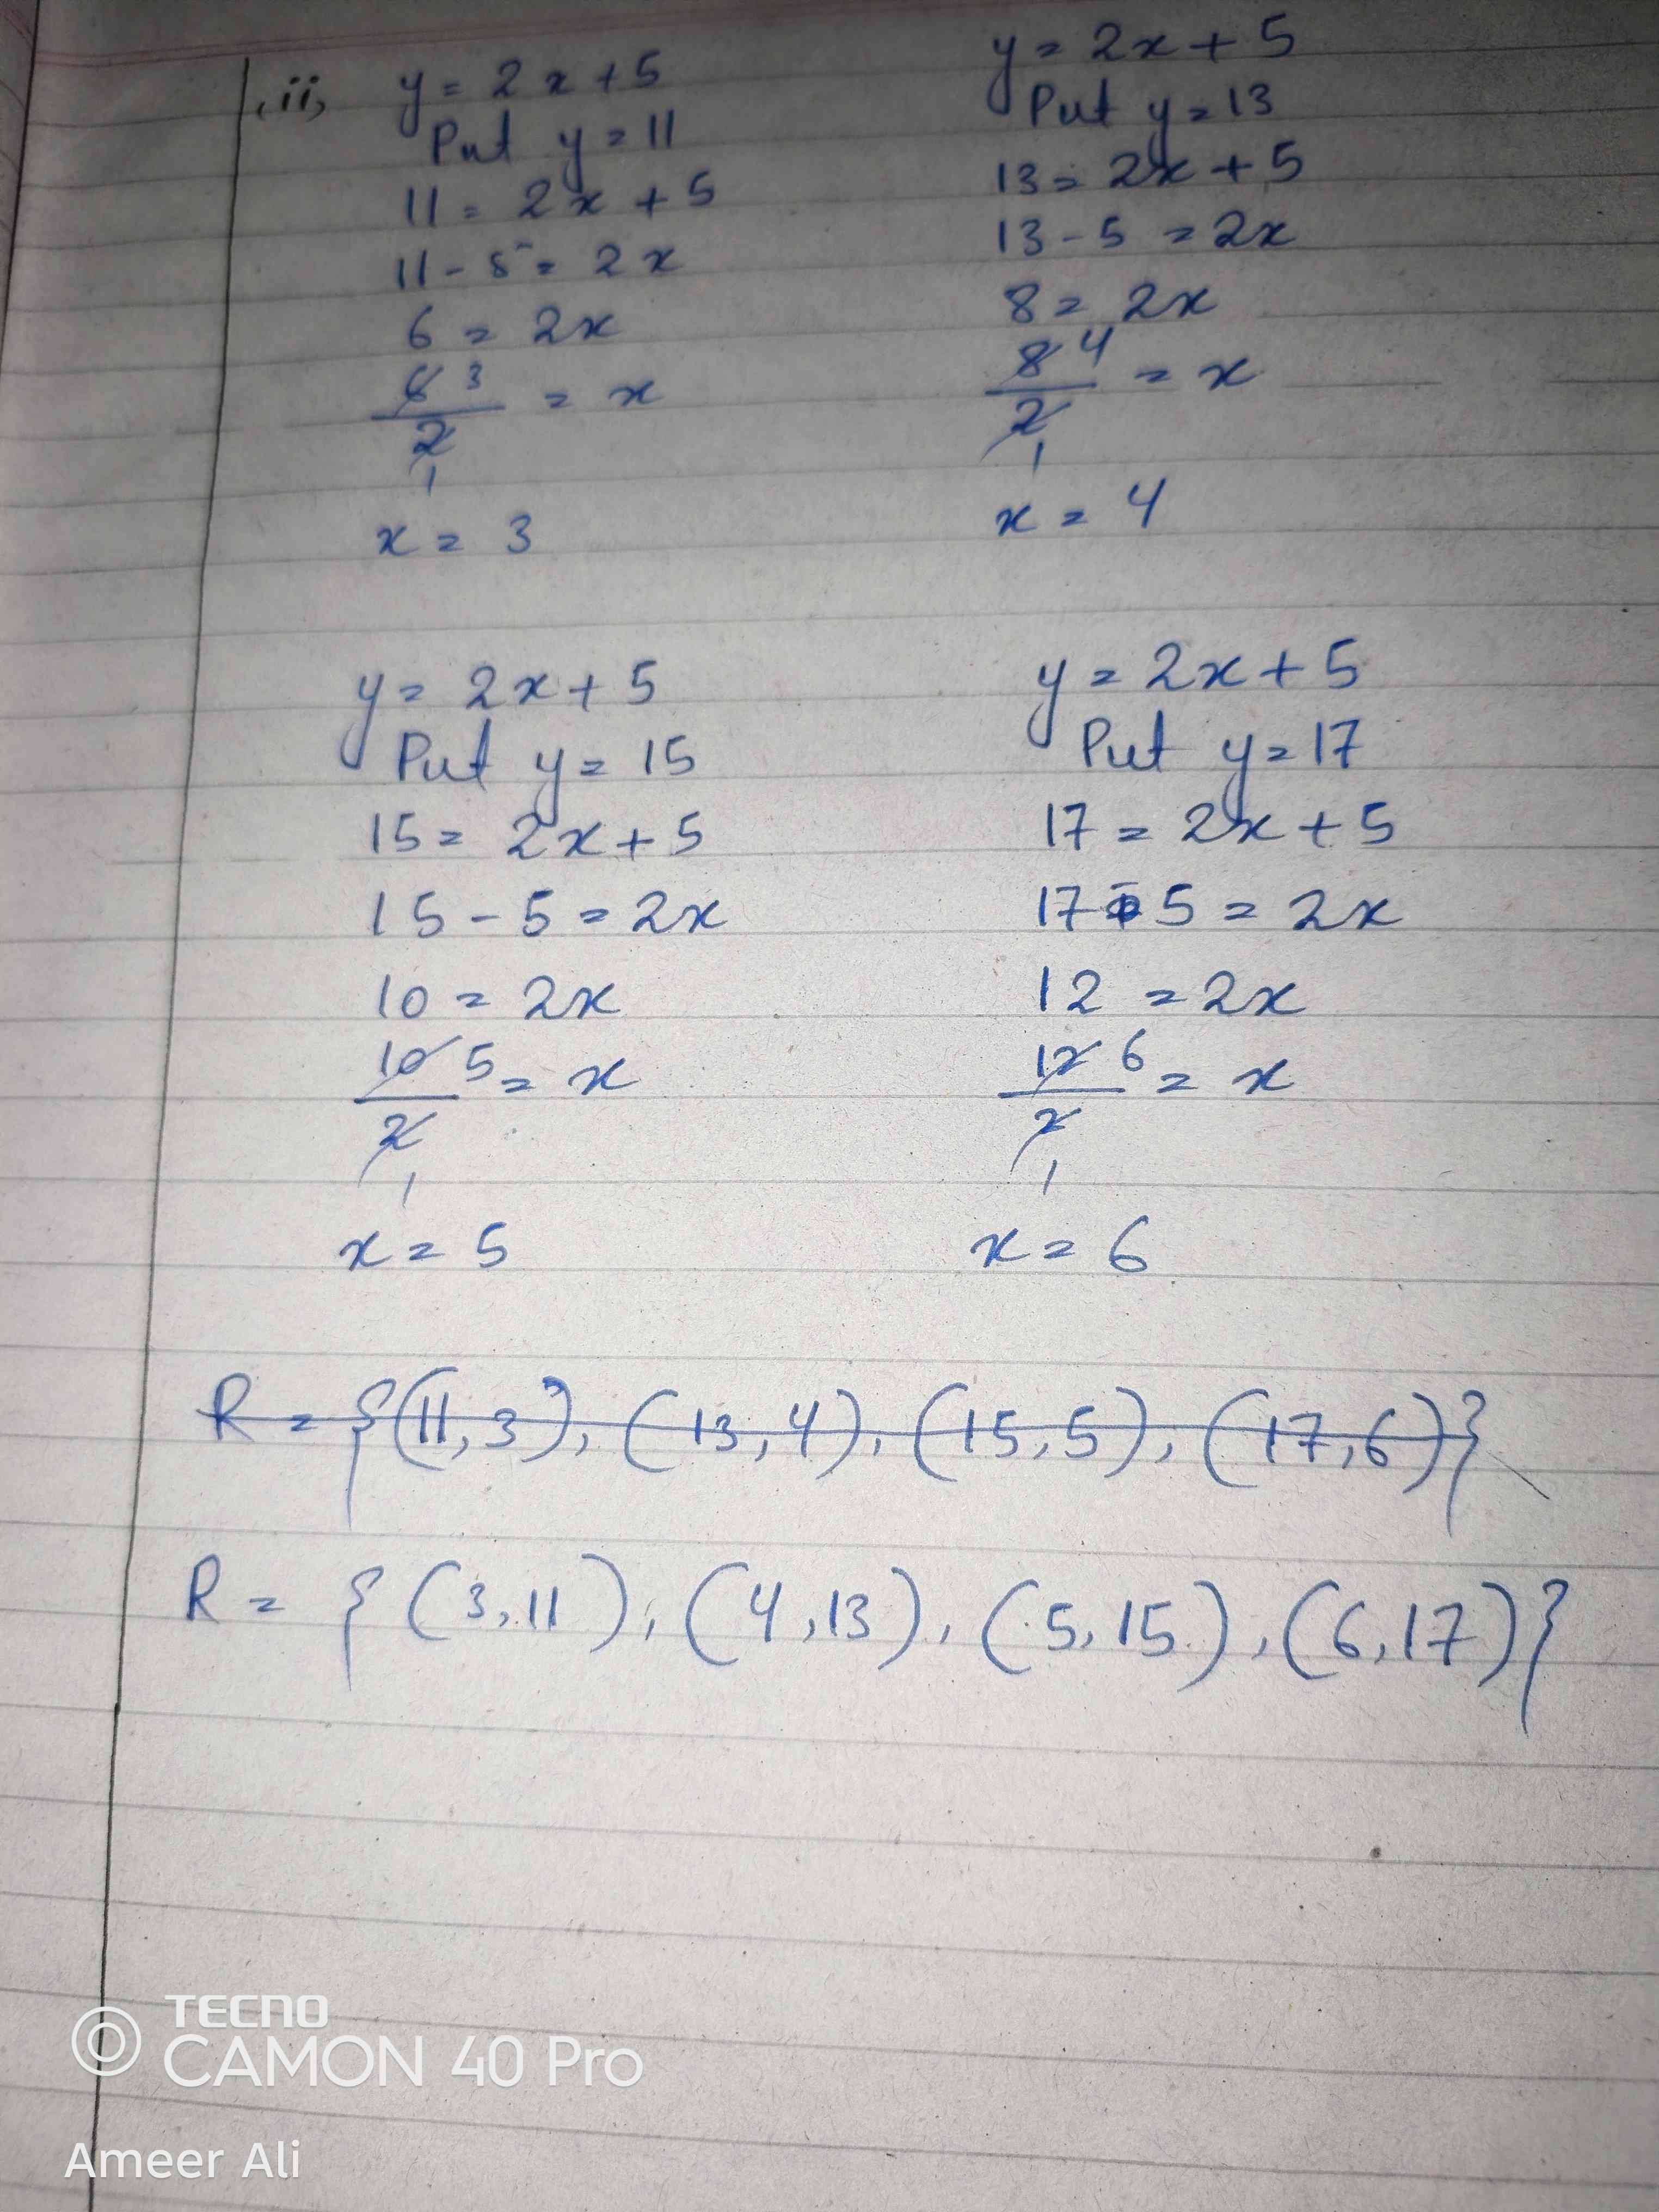 (ii) y = 2x + 5
Put y = 11
11 = 2x + 5
11 - 5 = 2x
6 = 2x
6 3
2 = x
1
x = 3
y = 2x + 5
Put y = 13
13 = 2x + 5
13 - 5 = 2x
8 = 2x
8 4
2 = x
1
x = 4
y = 2x + 5
Put y = 15
15 = 2x + 5
15 - 5 = 2x
10 = 2x
10 5
2 = x
1
x = 5
y = 2x + 5
Put y = 17
17 = 2x + 5
17 - 5 = 2x
12 = 2x
12 6
2 = x
1
x = 6
R = {(11,3), (13,4), (15,5), (17,6)}
R = {(3,11), (4,13), (5,15), (6,17)}
TECNO
CAMON 40 Pro
Ameer Ali